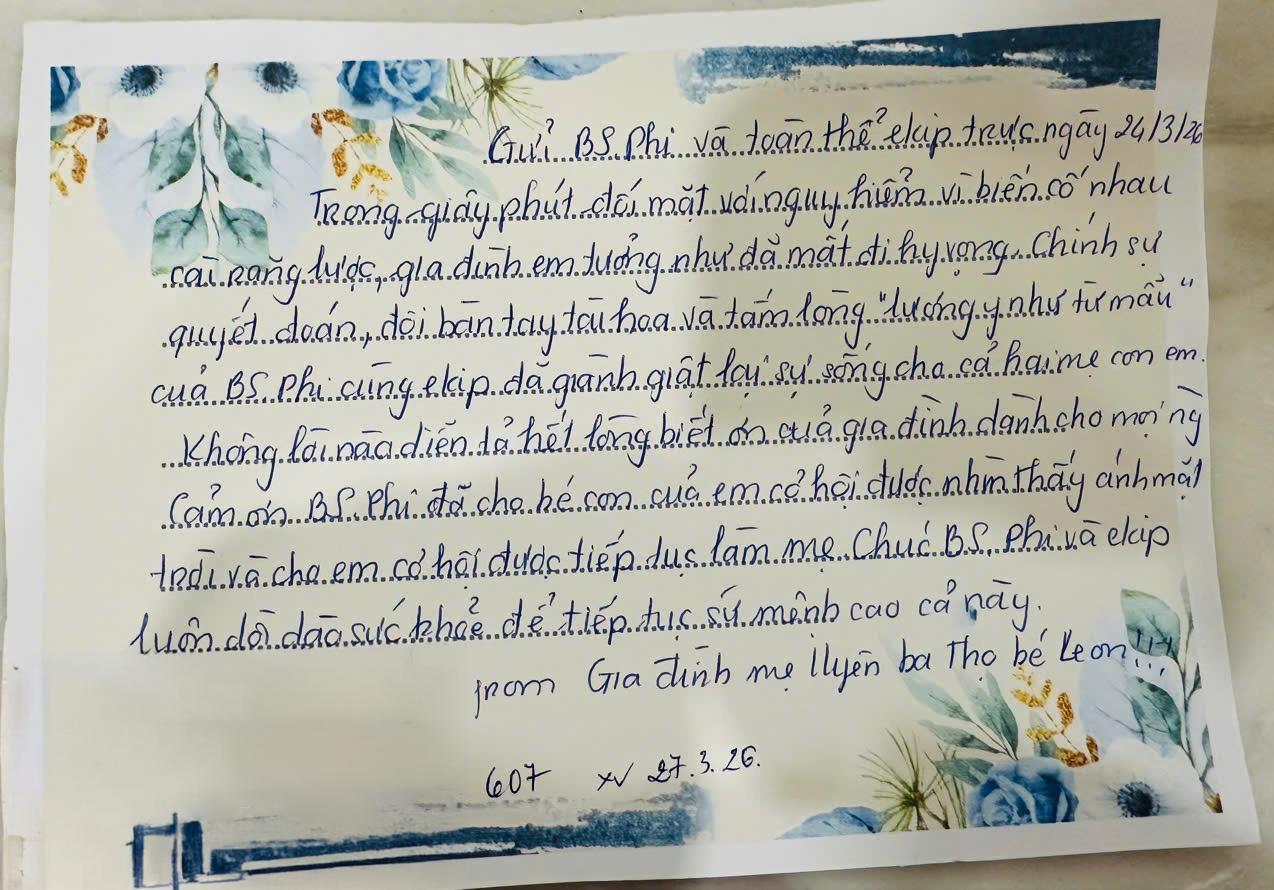 Gửi BS Phi và toàn thể ekip trực ngày 24/3/26
Trong giây phút đối mặt với nguy hiểm vì biến cố nhau
cài răng lược, gia đình em tưởng như đã mất đi hy vọng. Chính sự
quyết đoán, đôi bàn tay tài hoa và tấm lòng "lương y như từ mẫu"
của BS Phi cùng ekip đã giành giật lại sự sống cho cả hai mẹ con em.
Không lời nào diễn tả hết lòng biết ơn của gia đình dành cho mọi ng
Cảm ơn BS Phi đã cho bé con của em cơ hội được nhìn thấy ánh mặt
trời và cho em cơ hội được tiếp tục làm mẹ. Chúc BS. Phi và ekip
luôn dồi dào sức khỏe để tiếp tục sứ mệnh cao cả này.
from Gia đình mẹ Uyên ba Thọ bé Leon
607 XV 27.3.26.